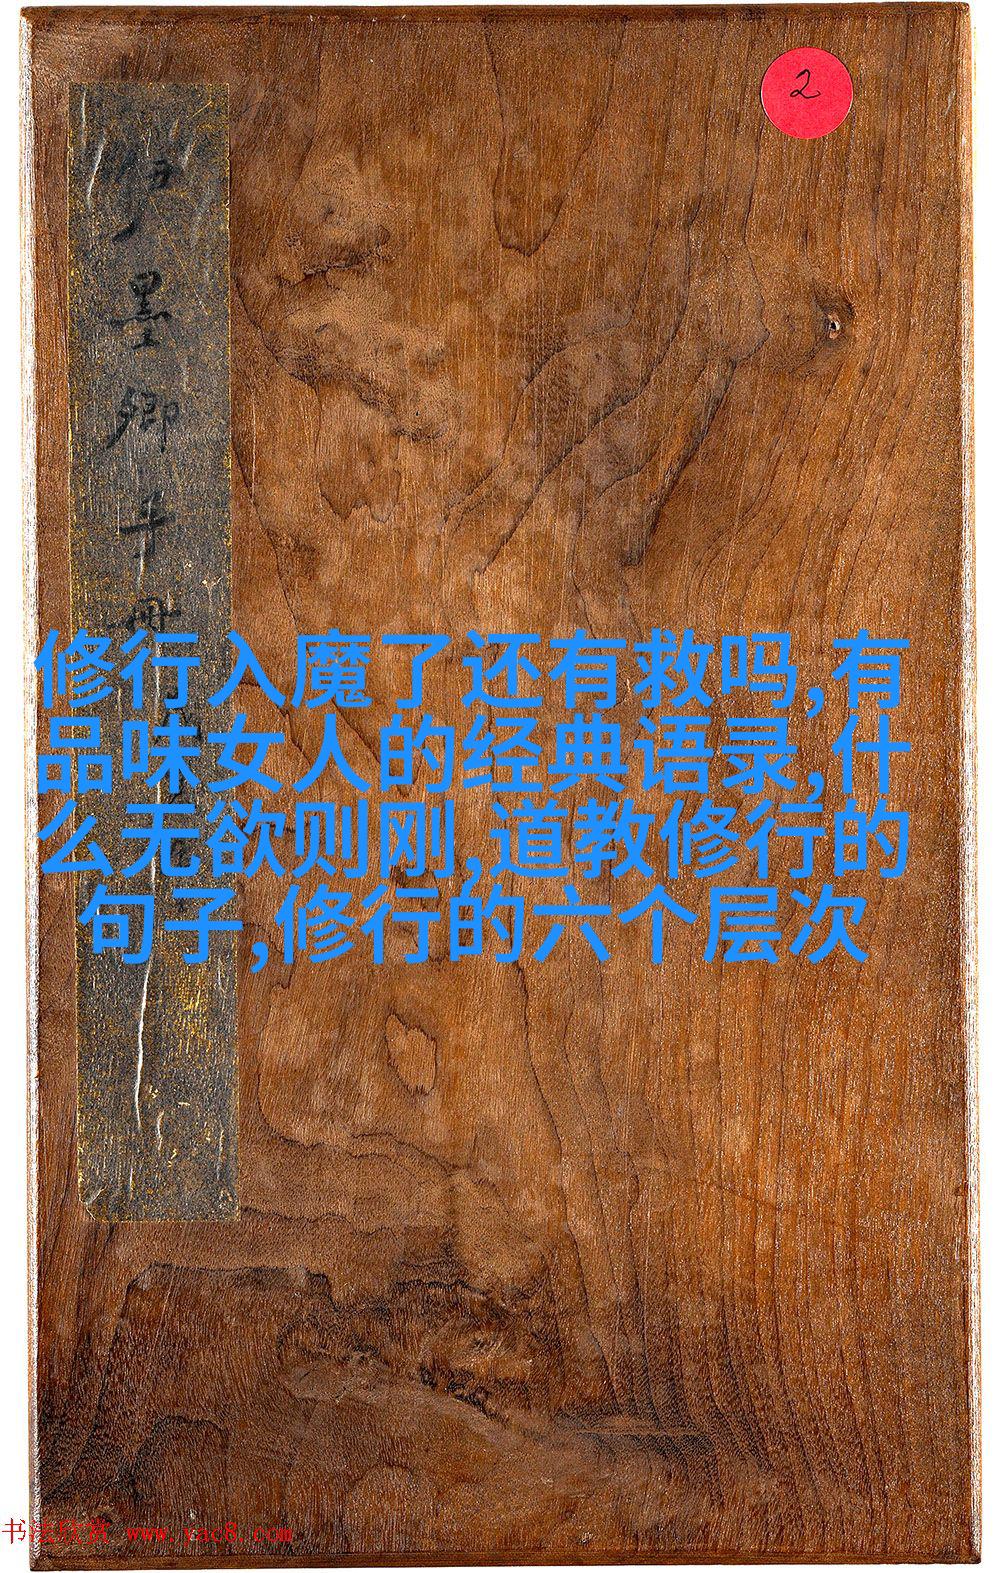 2
墨卿手冊
修行入魔了还有救吗,有
品味女人的经典语录,什
么无欲则刚,道教修行的
句子,修行的六个层次
书法欣赏 www.yac8.com